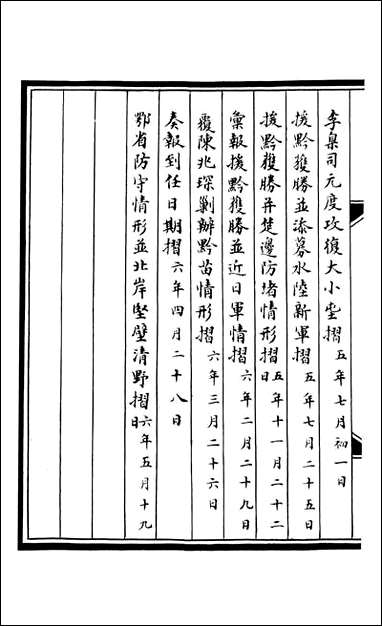 李臬司元度攻復大小壘摺 五年七月初一日
援黔獲勝並添募水陸新軍摺 五年七月二十五日
援黔獲勝并楚邊防堵情形摺 五年十一月二十二日
彙報援黔獲勝並近日軍情摺 六年二月二十九日
覆陳兆琛剿辦黔苗情形摺 六年三月二十六日
奏報到任日期摺 六年四月二十八日
鄂省防守情形並北岸堅壁清野摺 六年五月十九日